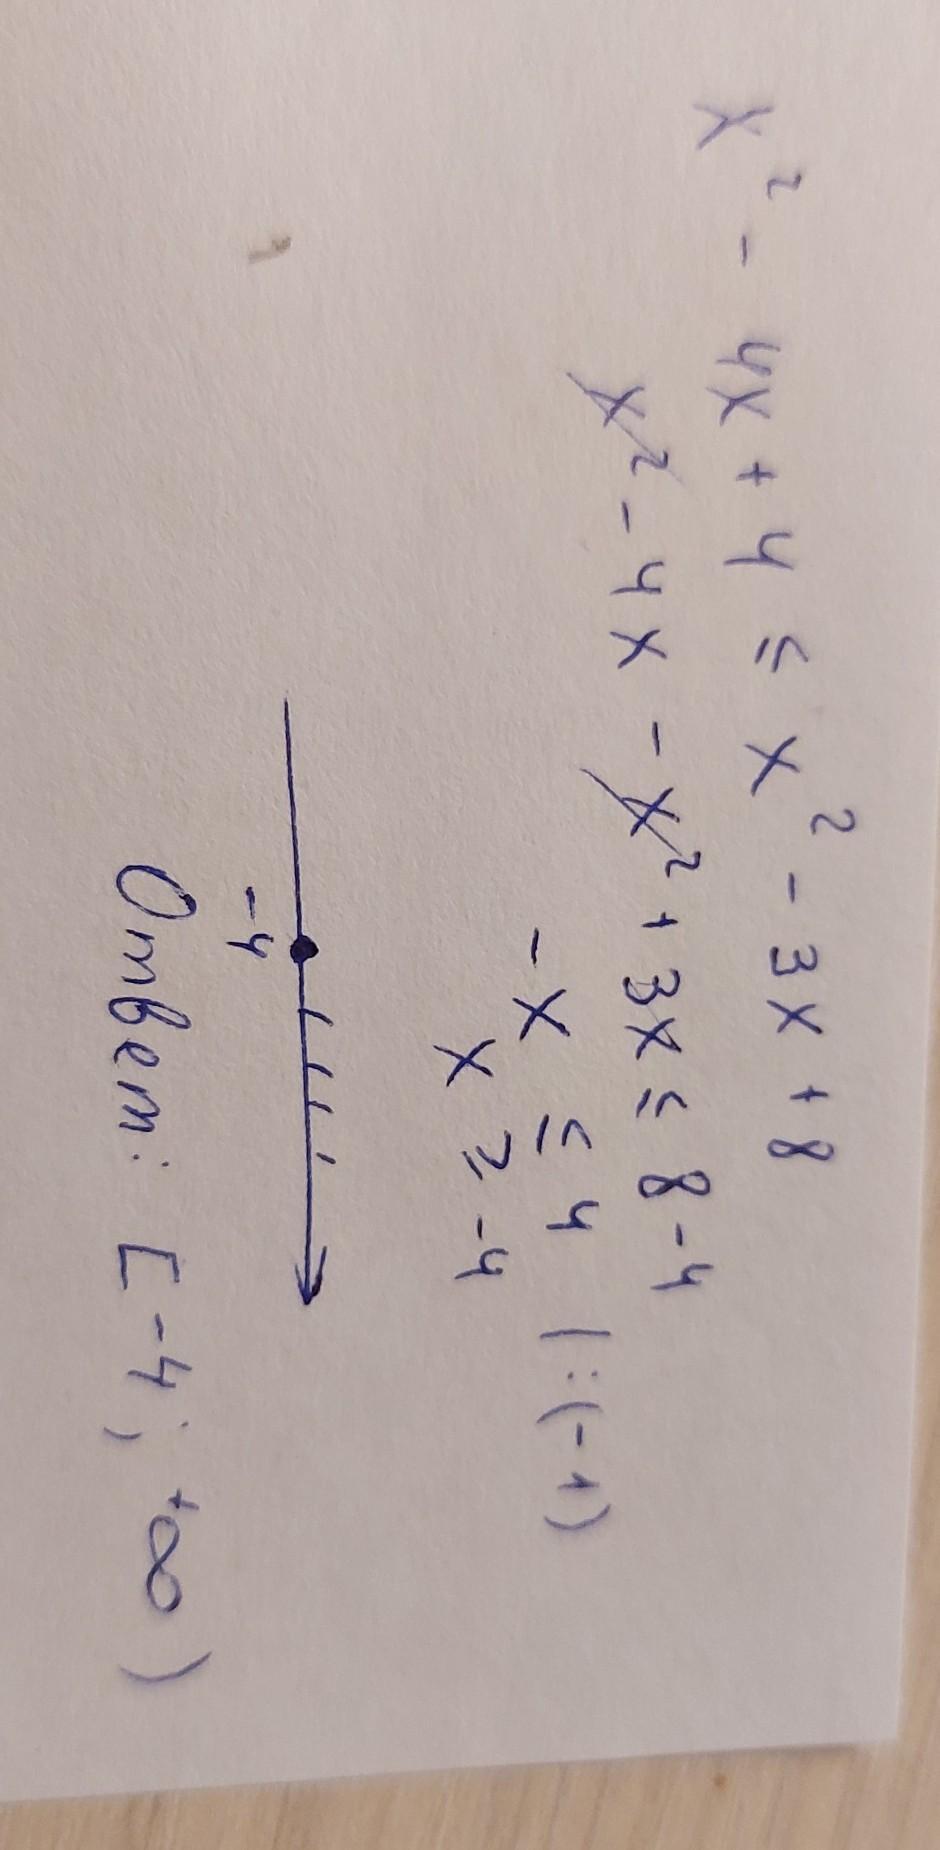 x² - 4x + 4 ≤ x² - 3x + 8
x² - 4x - x² + 3x ≤ 8 - 4
- x ≤ 4 | : (-1)
x ≥ -4
-4
Ответ: [-4; +∞)